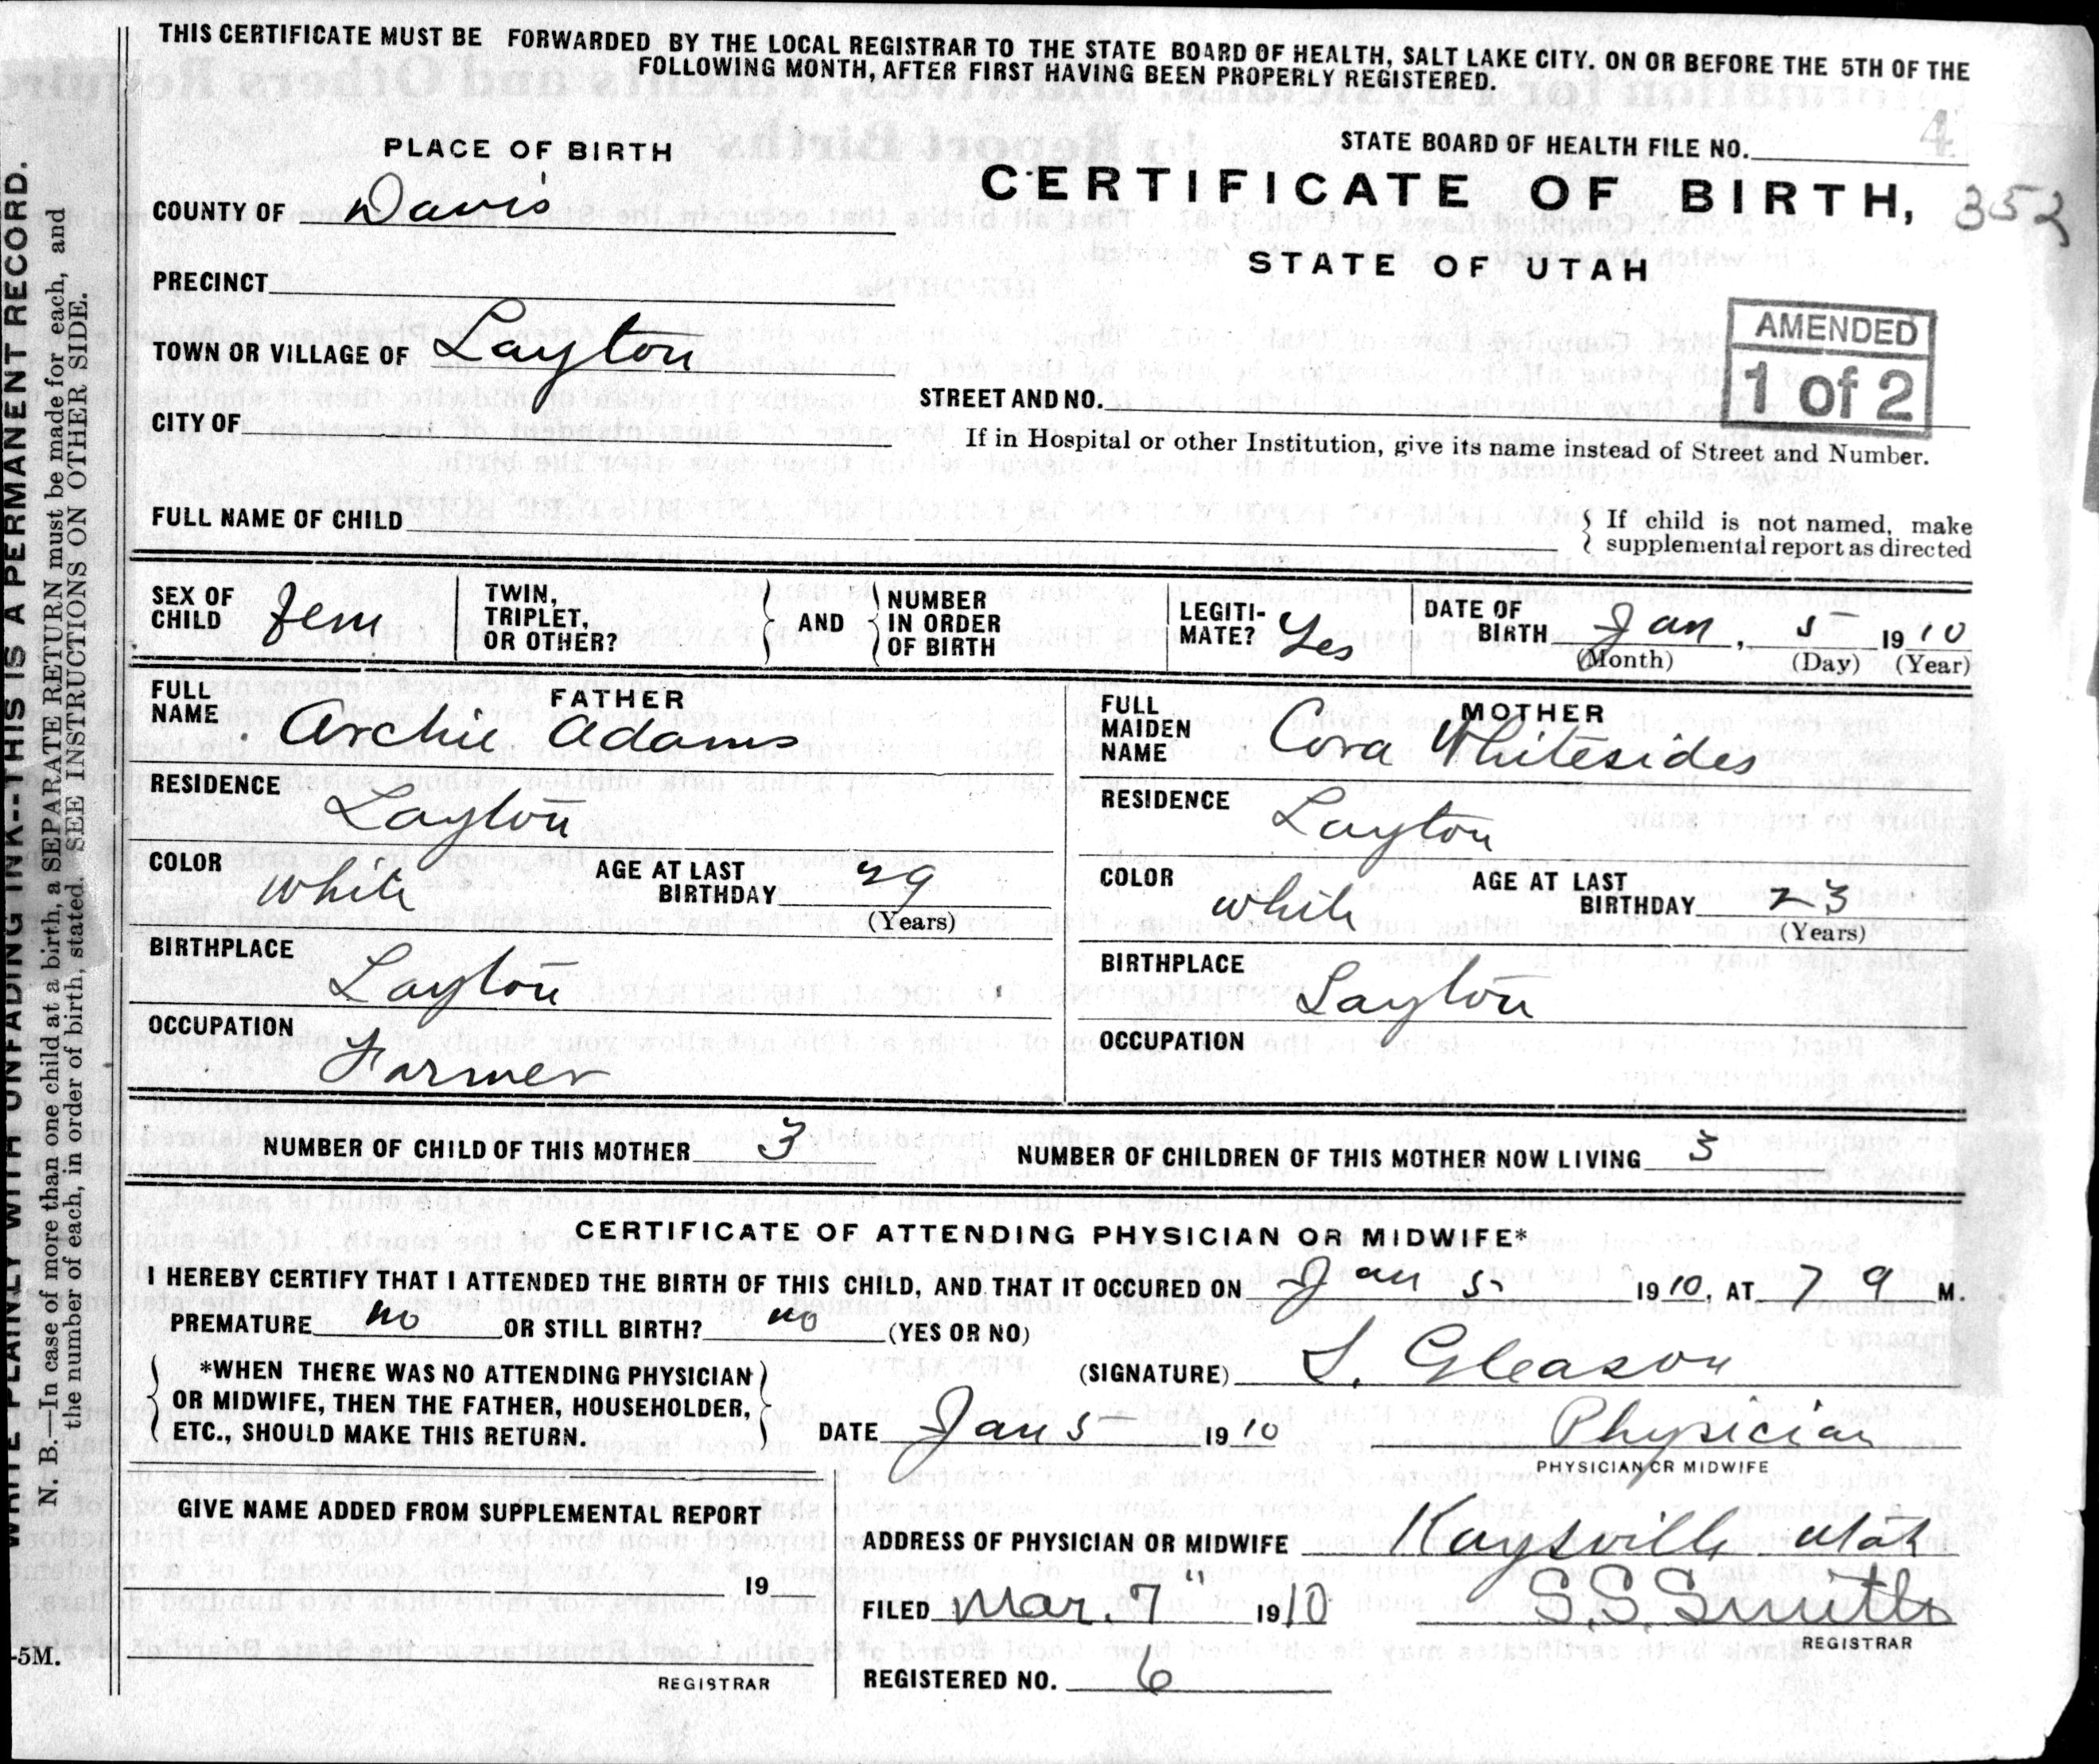 THIS CERTIFICATE MUST BE FORWARDED BY THE LOCAL REGISTRAR TO THE STATE BOARD OF HEALTH, SALT LAKE CITY. ON OR BEFORE THE 5TH OF THE
FOLLOWING MONTH, AFTER FIRST HAVING BEEN PROPERLY REGISTERED.
PLACE OF BIRTH
STATE BOARD OF HEALTH FILE NO. 4
COUNTY OF Davis
CERTIFICATE OF BIRTH, 352
STATE OF UTAH
PRECINCT
AMENDED
1 of 2
TOWN OR VILLAGE OF Layton
STREET AND NO.
CITY OF
If in Hospital or other Institution, give its name instead of Street and Number.
FULL NAME OF CHILD
If child is not named, make
supplemental report as directed
SEX OF CHILD Fem
TWIN, TRIPLET, OR OTHER?
AND
NUMBER IN ORDER OF BIRTH
LEGITI-MATE? Yes
DATE OF BIRTH Jan, 5 1910
(Month) (Day) (Year)
FATHER
FULL NAME Archie Adams
RESIDENCE Layton
COLOR White
AGE AT LAST BIRTHDAY 29
(Years)
BIRTHPLACE Layton
OCCUPATION Farmer
MOTHER
FULL MAIDEN NAME Cora Whitesides
RESIDENCE Layton
COLOR white
AGE AT LAST BIRTHDAY 23
(Years)
BIRTHPLACE Layton
OCCUPATION
NUMBER OF CHILD OF THIS MOTHER 3
NUMBER OF CHILDREN OF THIS MOTHER NOW LIVING 3
CERTIFICATE OF ATTENDING PHYSICIAN OR MIDWIFE*
I HEREBY CERTIFY THAT I ATTENDED THE BIRTH OF THIS CHILD, AND THAT IT OCCURED ON Jan 5 1910, AT 7 a M.
PREMATURE no OR STILL BIRTH? no (YES OR NO)
*WHEN THERE WAS NO ATTENDING PHYSICIAN
OR MIDWIFE, THEN THE FATHER, HOUSEHOLDER,
ETC., SHOULD MAKE THIS RETURN.
(SIGNATURE) S. Gleason
DATE Jan 5 1910
Physician
PHYSICIAN OR MIDWIFE
GIVE NAME ADDED FROM SUPPLEMENTAL REPORT
19
REGISTRAR
ADDRESS OF PHYSICIAN OR MIDWIFE Kaysville Utah
FILED Mar. 7" 1910
S.S. Smith
REGISTRAR
REGISTERED NO. 6
WRITE PLAINLY WITH UNFADING INK--THIS IS A PERMANENT RECORD.
N. B.—In case of more than one child at a birth, a SEPARATE RETURN must be made for each, and
the number of each, in order of birth, stated. SEE INSTRUCTIONS ON OTHER SIDE.
-5M.